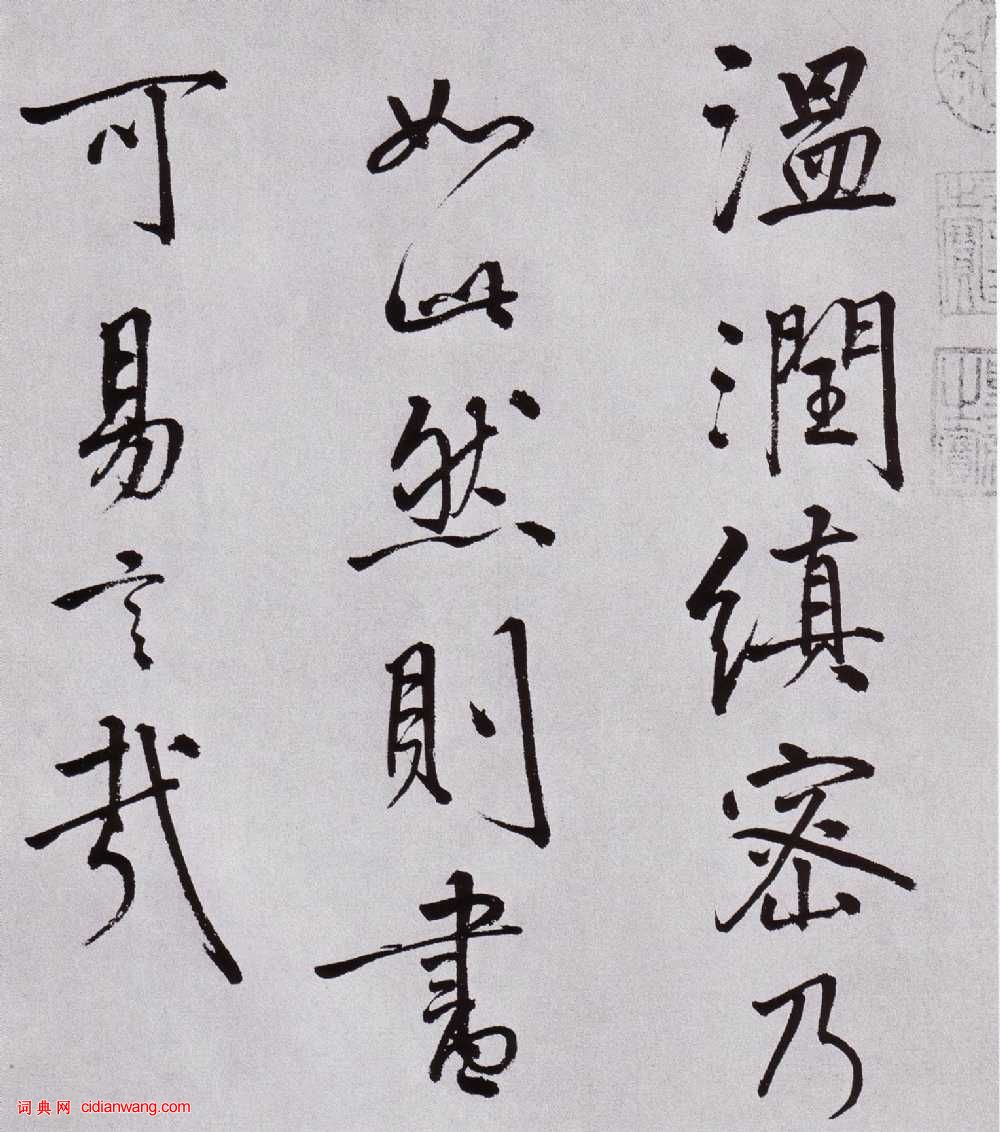 溫潤縝密乃
如此然則畫
可易言哉
词典网 cidianwang.com